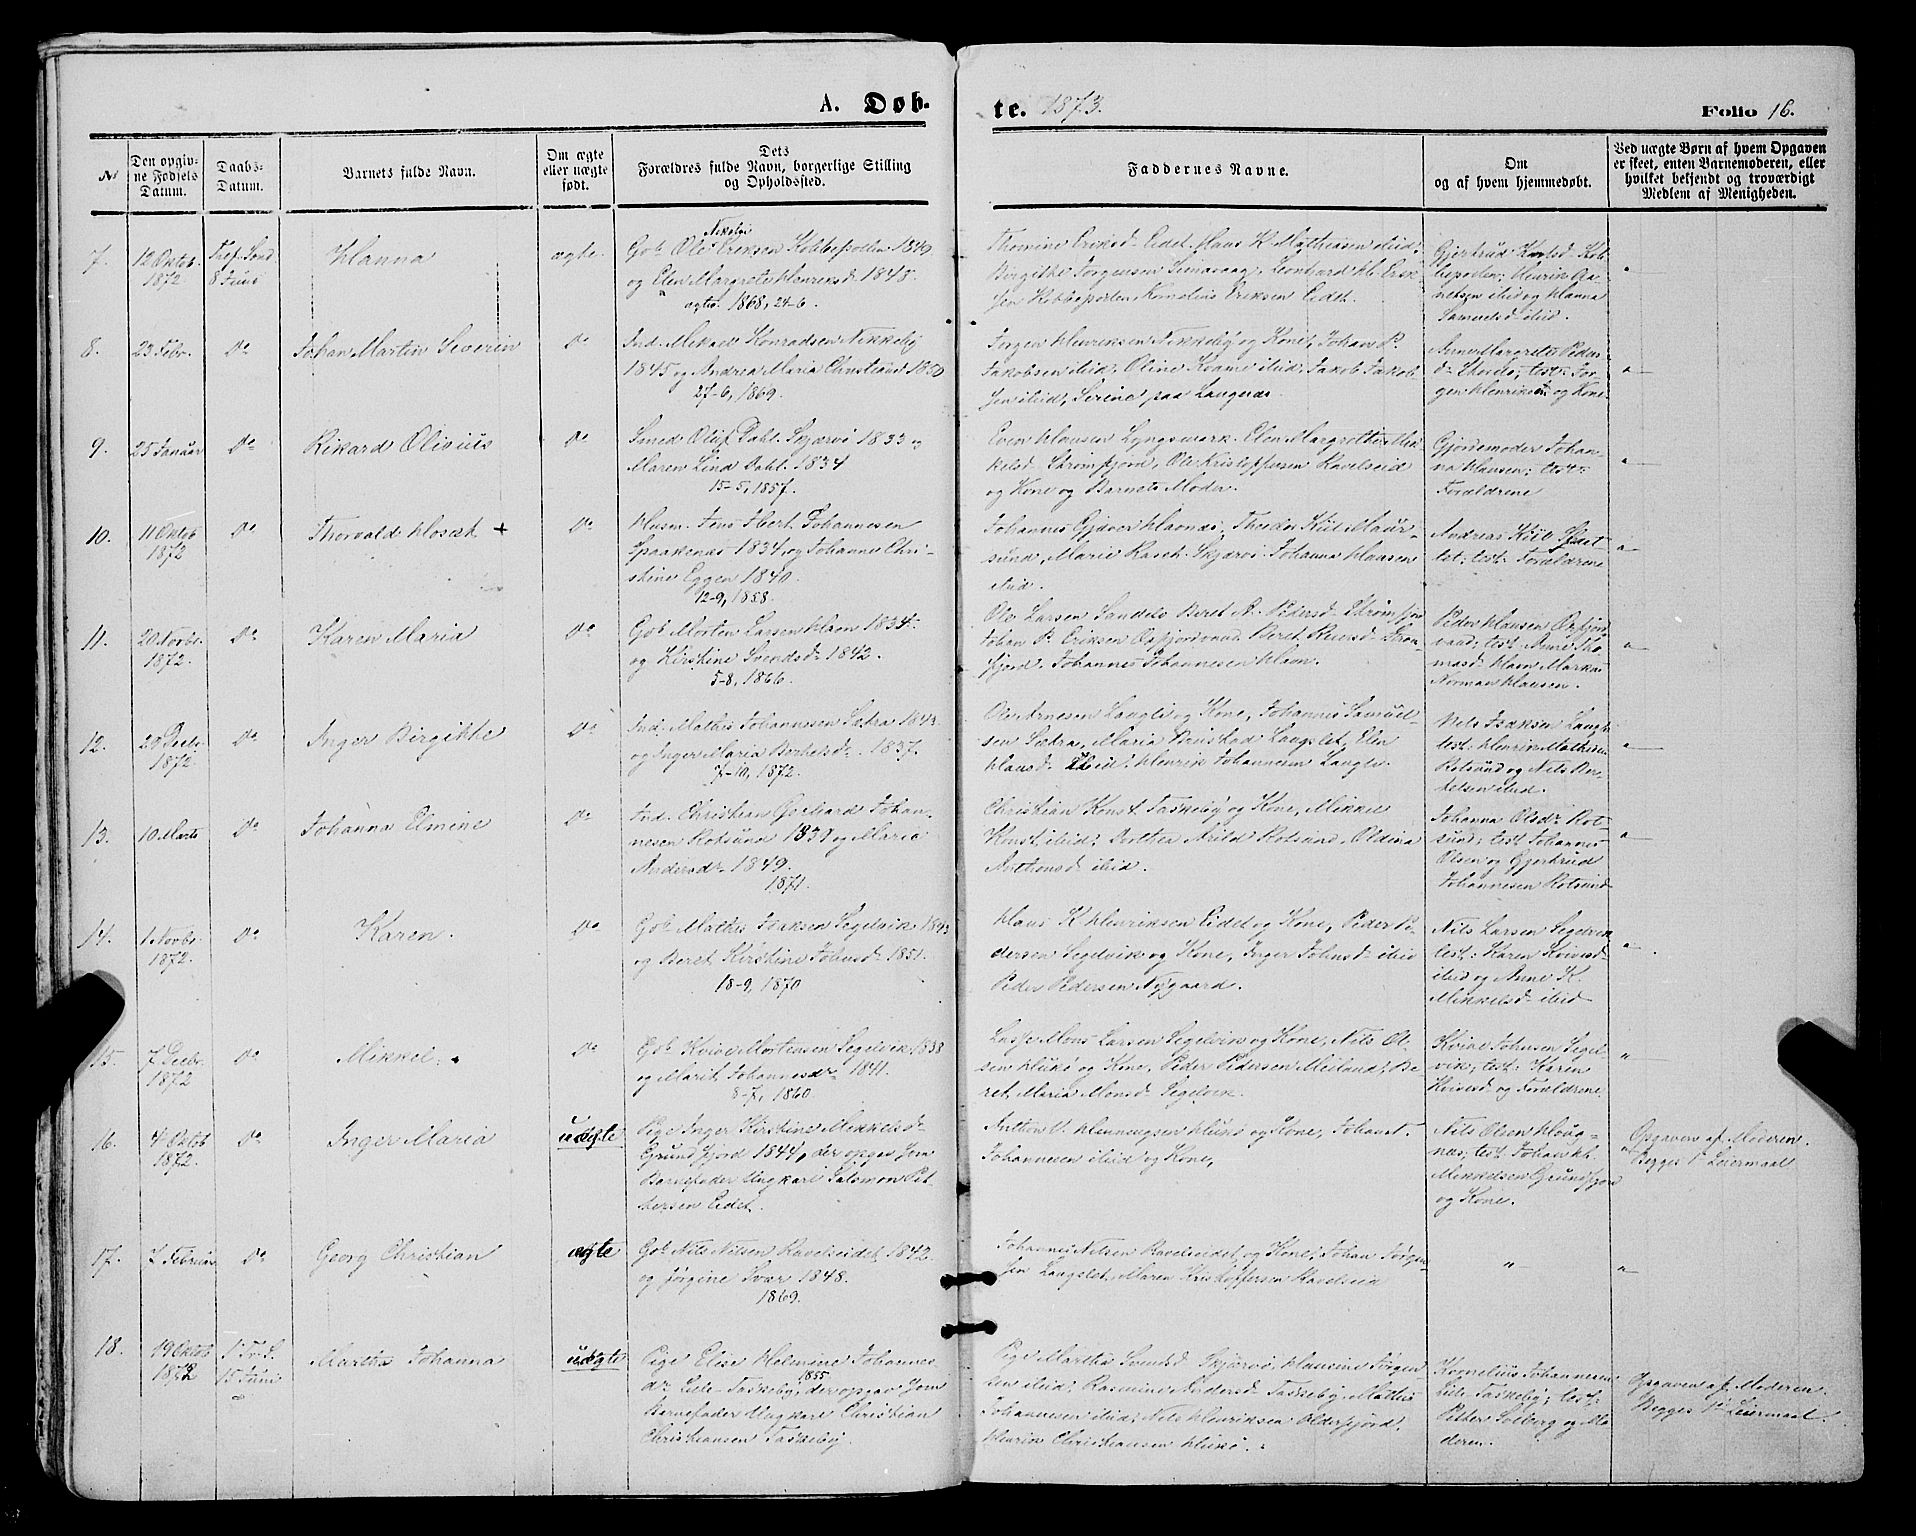 A. Døb-
te. 1873.
Folio 16.
No
Den opgiv-
ne Fødsels
Datum.
Daabs-
Datum.
Barnets fulde Navn.
Om ægte
eller uægte
født.
Dets
Forældres fulde Navn, borgerlige Stilling
og Opholdssted.
Faddernes Navne.
Om
og af hvem hjemmedøbt.
Ved uægte Børn af hvem Opgaven
er skeet, enten Barnemoderen, eller
hvilket bekjendt og troværdigt
Medlem af Menigheden.
7.
12 Oktob.
1872.
Tref. Sönd
8 Juni
Hanna
ægte.
Nikolai
Gbr. Ole Eriksen Kobbepollen 1840
og Elen Margrete Henriksdr 1848.
egtev. 1868, 24-6.
Thomine Eriksd. Eidet, Hans K. Mathiesen ibid;
Birgithe Jörgensen Leonhard H. Erik-
sen Kobbepollen, Kornelius Eriksen Eidet.
Gjertrud Kob-
bepollen; Henrik
ibid og Hanna
Samuelsd ibid.
"
8.
23 Febr.
Do
Johan Martin Severin
Do
Ind. Mikael Konradsen Nikkeby
1845 og Andrea Maria Christiansd 1850
27-6, 1869.
Jörgen Henriksen Nikkeby og Kone, Johan P.
Jakobsen ibid, Oline Kvame ibid, Jakob Jakob-
sen ibid, Serine paa Laugnes
Anne Margrete Peder-
test: Jör-
gen Henriksen og Kone
"
9.
25 Januar
Do
Rikard Olivius
Do
Smed Oluf Dahl Skjærvö 1833 og
Maren Lind Dahl. 1834
15-5, 1857.
Even Hansen Lyngsmark. Elen Margrethe Mik-
kelsd. Strömfjord, Ole Kristoffersen Ravelseid
og Kone og Barnets Moder.
Gjordemoder Johan-
na Hansen; test:
Forældrene
"
10.
11 Oktob
1872
Do
Thorvald Hosæth +
Do
Husm. Jens Hert. Johannesen
Spaakenæs 1834 og Johanne Chri-
stine Eggen 1840.
12-9, 1858.
Johannes Gjæver Havnæs, Theodor Kiil Maur-
sund, Marie Rasch Skjærvö. Johanna Hansen
ibid.
Andreas Kiil Slæt-
tet; test: Forældrene
"
11.
20 Novbr.
1872.
Do
Karen Maria
Do
Gbr. Morten Larsen Havn 1834
og Kirstine Svendsdr 1842.
5-8, 1866.
Ole Larsen Sandelv Beret A. Pedersd. Strömfjord
Johan P. Eriksen Oxfjordvand Beret Strøm-
fjord, Johannes Johannesen Havn.
Peder Hansen Oxfjord-
vand; test: Anne Tho-
masd. Havn Markus
Norman Hansen.
"
12.
29 Decbr
1872.
Do
Inger Birgitte
Do
Ind. Mathis Johannesen Sætra 1843
og Inger Maria Berhelsdr 1837.
7-10, 1872.
Ole Arnesen Langli og Kone, Johannes Samuel-
sen Sætra, Maria Langslet, Elen
Hansd. ibid. Henrik Johannesen Langli.
Nils Isaksen Langli
test: Henrik Mathisen
Rotsund og Nils Ber-
telsen ibid.
"
13.
10 Marts
Do
Johanna Elmine
Do
Ind. Christian Gerhard Johan-
nesen Rotsund 1839 og Maria
Andersdr 1849.
1871.
Christian Konst. Taskeby og Kone, Mikkel
Konst. ibid; Dorthea Arild Rotsund, Oldina
Anthonsd ibid.
Johanna Olsdr Rot-
sund; test Johannes
Olsen og Gjertrud
Johannesen Rotsund
"
14.
1 Novbr.
1872.
Do
Karen.
Do
Gbr. Mathis Isaksen Segelvik 1843
og Beret Kirstine Johnsdr 1851.
18-9, 1870
Hans K. Henriksen Eidet og Kone, Peder Pe-
dersen Segelvik og Kone, Inger Johnsd. ibid
Peder Pedersen Nygaard.
Nils Larsen Segelvik
test: Karen Kvivesd
ibid og Anne K.
Mikkelsd. ibid
"
15.
7 Decbr.
1872
Do
Mikkel.
Do
Gbr. Kvive Mortensen Segelvik 1838
og Marit Johannesdr 1841.
8-7, 1860
Lasse Mons Larsen Segelvik og Kone, Nils Ol-
sen Hukö og Kone, Peder Pedersen Meiland, Be-
ret Maria Monsd. Segelvik.
Kvive Johnsen Segel-
vik; test: Karen
Kvivesd og Forældrene
"
16.
4 Oktob
1872.
Do
Inger Maria
uægte
Pige Inger Kirstine Mikkelsd.
Grundfjord 1844, der opgav som
Barnefader Ungkarl Salomon Pet-
tersen Eidet.
Anton U. Henningsen Hukö og Kone, Johan T.
Johannesen ibid og Kone,
Nils Olsen Houg-
næs; test: Johan H.
Mikkelsen Grundfjord
og Kone.
Opgaven af Moderen.
Begges 1te Leiermaal
17.
2 Februar
Do
Georg Christian
ægte
Gbr. Nils Nilsen Ravelseidet 1842
og Jörgine Svar 1848.
1869.
Johannes Nilsen Ravelseidet og Kone, Johan Jörgen-
sen Langslet, Maren Kristoffersen Ravelseid
"
"
18.
19 Oktob
1872
1. Tr. S.
15 Juni
Martha Johanna
uægte
Pige Elise Helmine Johannes-
dr. Lille-Taskeby, der opgav som
1855
Barnefader Ungkarl Christian
Christiansen Taskeby.
Pige Martha Svendsd Skjærvö, Hansine Jörgen-
sen ibid; Rasmine Andersd. Taskeby, Mathis
Johannesen ibid; Nils Henriksen Olderfjord,
Henrik Christiansen Hukö.
Kornelius Johannesen
Lille Taskeby; test:
Petter Solberg og Mo-
deren.
Opgaven af Moderen.
Begges 1te Leiermaal.